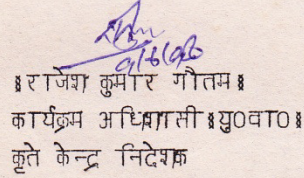 9/6/98
॥राजेश कुमार गौतम॥
कार्यक्रम अधिशासी॥यु0वा0॥
कृते केन्द्र निदेशक